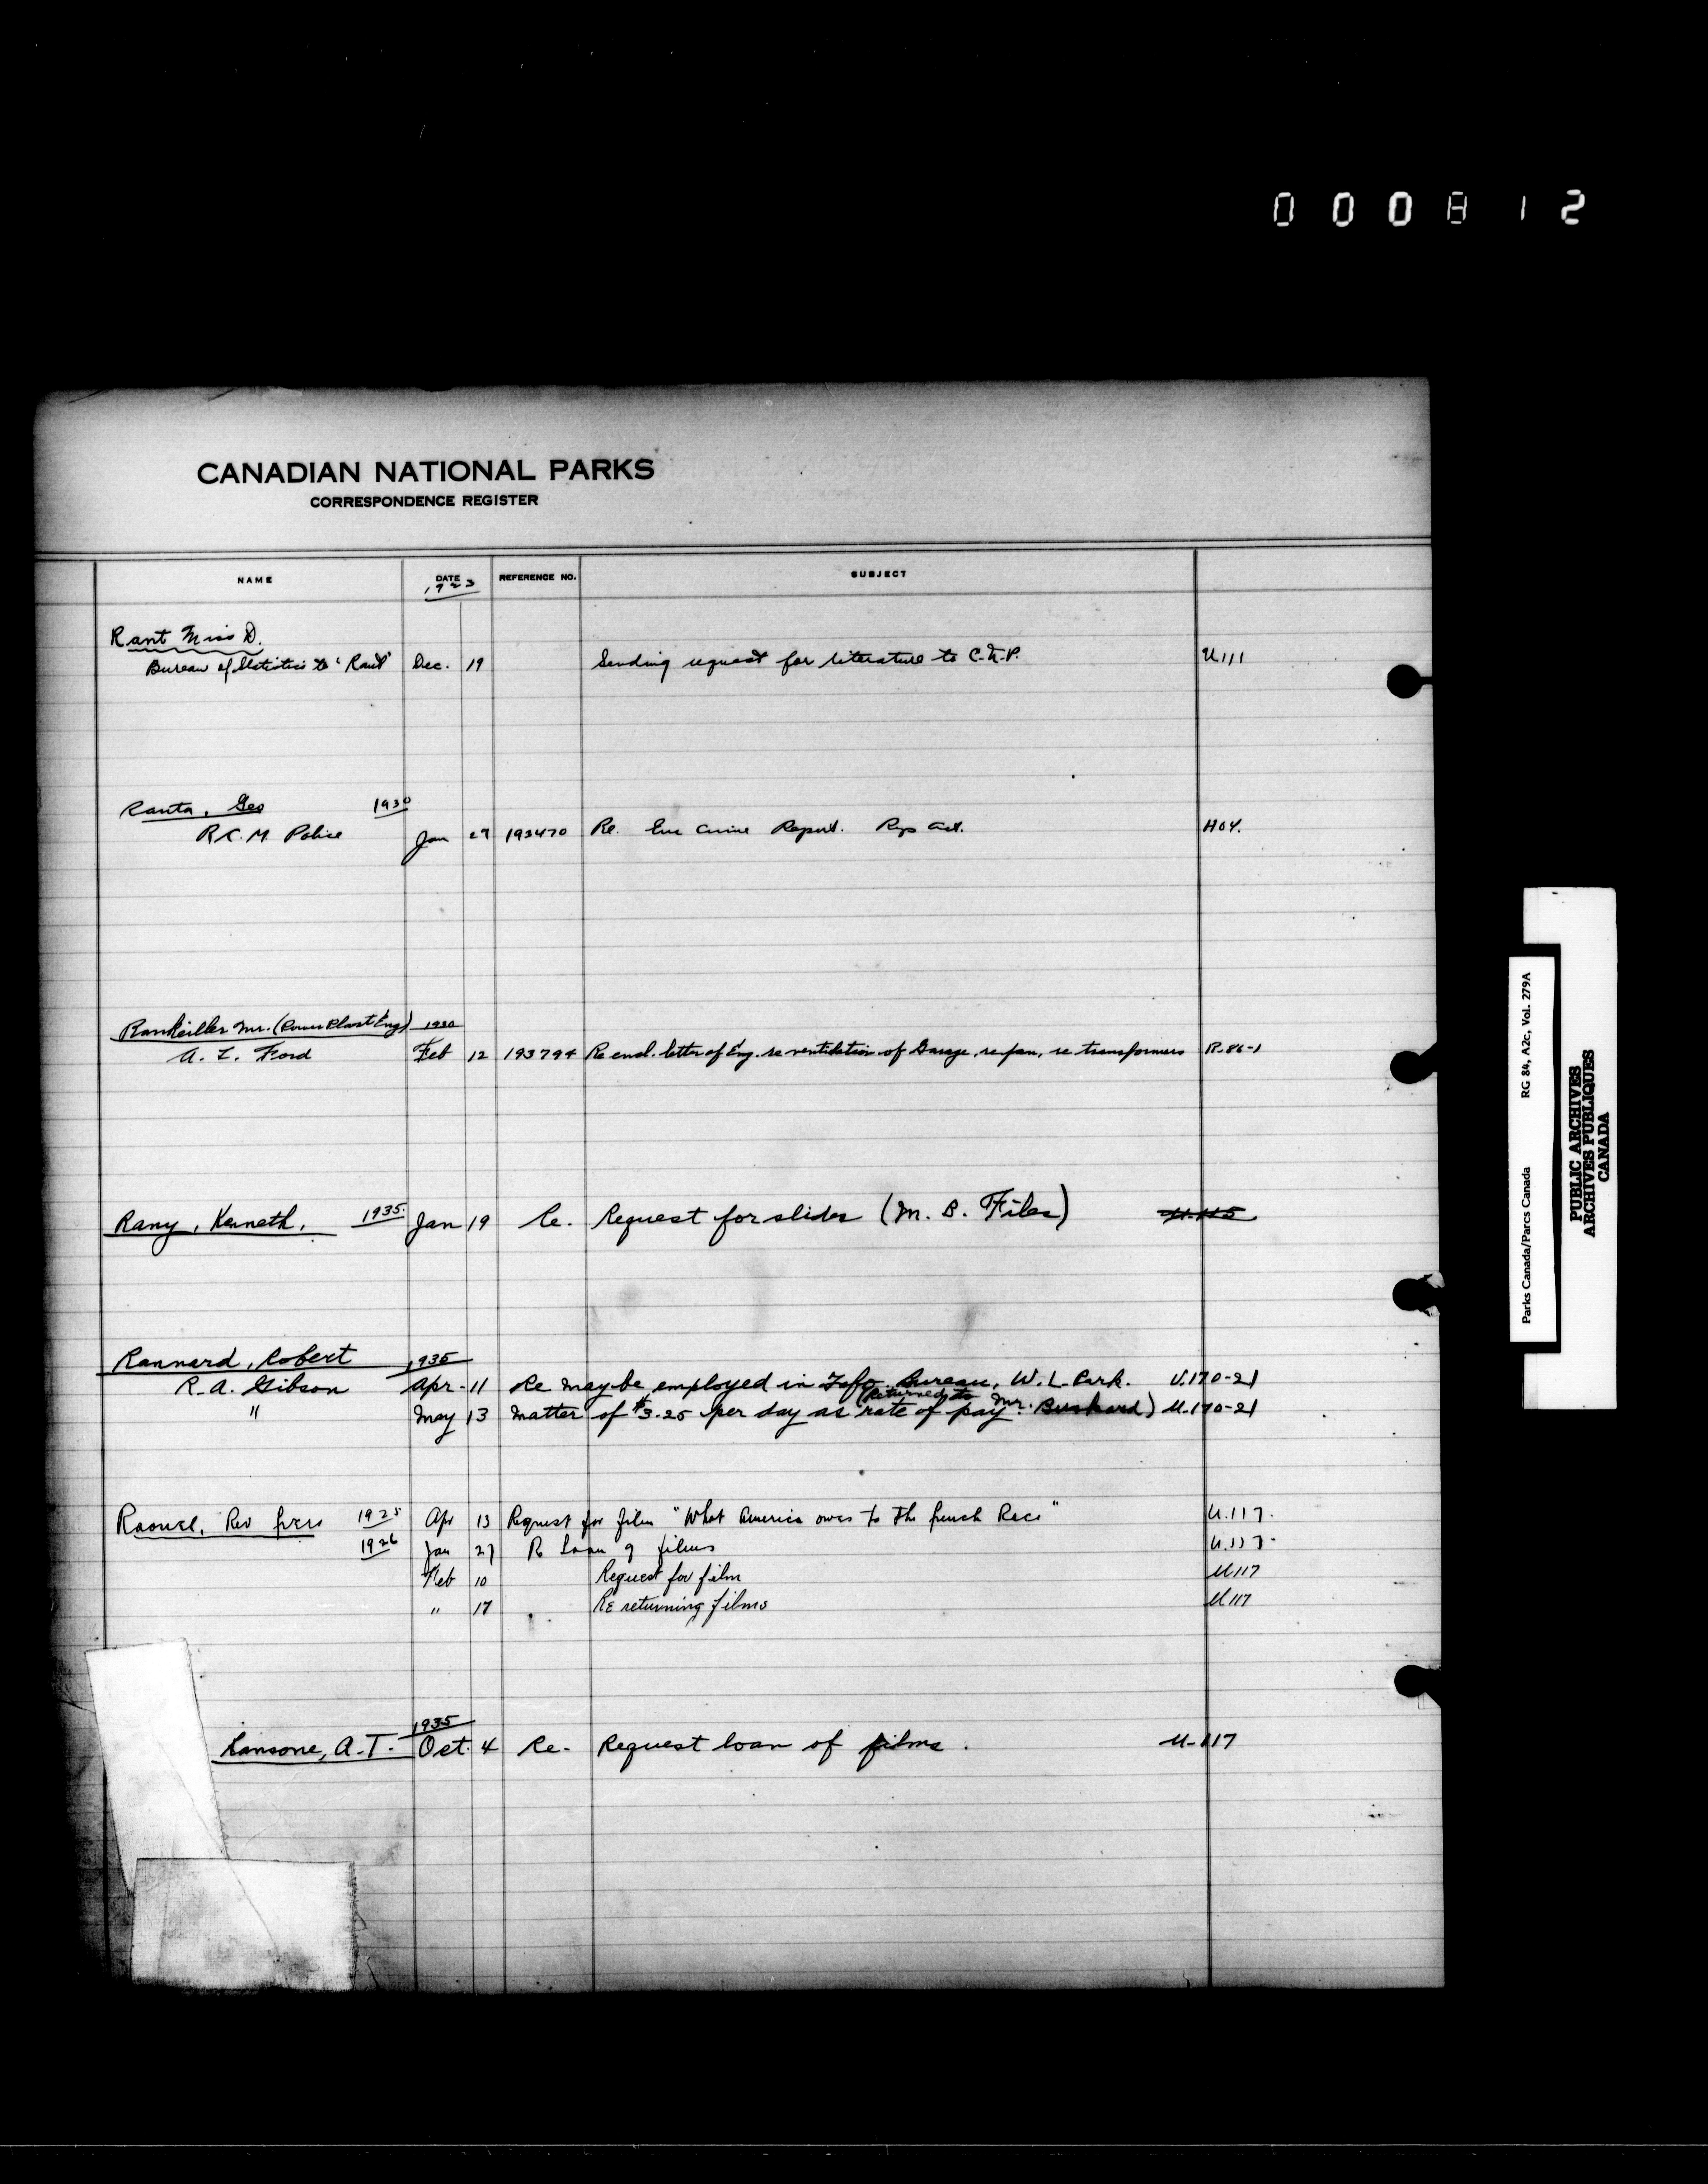 000812
CANADIAN NATIONAL PARKS
CORRESPONDENCE REGISTER
NAME DATE REFERENCE NO. SUBJECT
1923
Rant Miss D.
Bureau of Statistics to 'Rant' Dec. 19 Sending request for literature to C.N.P. U111
Ranta, Geo 1930
R.C.M Police Jan 27 193470 Re. Crime Report. Act.
Rankeiller Mr. (Power Plant Eng) 1930
A. L. Ford Feb 12 193794 Re encl. letter of Eng. re ventilation of Garage, re fan, re transformers R.86-1
Rany, Kenneth. 1935. Jan 19 Re. Request for slides (M. B. Files) U.115
Rannard, Robert 1935
R.A. Gibson Apr. 11 Re may be employed in Info. Bureau, W. L. Park. U.170-21
(Returned to
" May 13 Matter of $3.25 per day as rate of pay. Mr. Bushard) U.170-21
Raouel, Rev 1925 Apr 13 Request for film "What America owes to the french Race" U.117.
1926 Jan 27 Re Loan of films U.117.
Feb 10 Request for film U117
" 17 Re returning films U117
1935
Ransone, A.T. Oct. 4 Re. Request loan of films. U-117
Parks Canada/Parcs Canada RG 84, A2c, Vol. 279A
PUBLIC ARCHIVES
ARCHIVES PUBLIQUES
CANADA